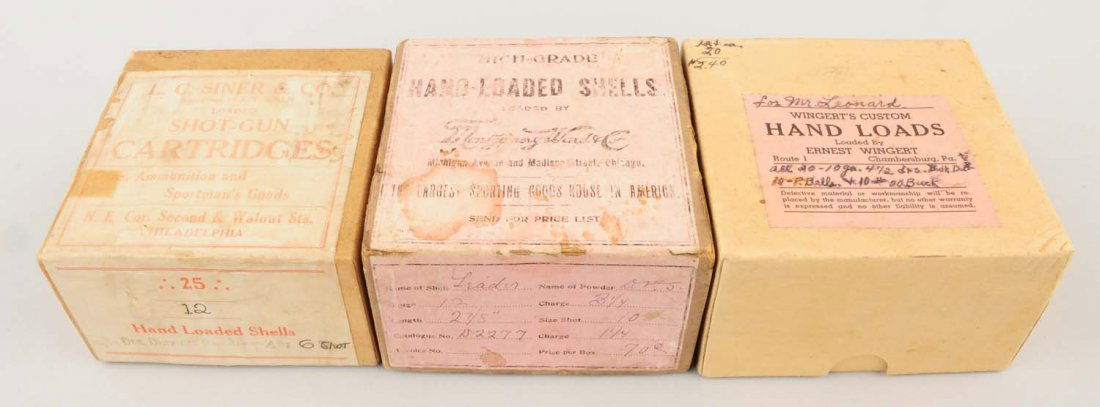 L. C. SINER & CO'S
LOADED
SHOT-GUN
CARTRIDGES
Ammunition and
Sportman's Goods
N. E. Cor. Second & Walnut Sts.
PHILADELPHIA
∴ 25 ∴
12
Hand Loaded Shells
Drs.
6 Shot
HIGH-GRADE
HAND-LOADED SHELLS
LOADED BY
Montgomery Ward & Co
Michigan Avenue and Madison Street, Chicago.
THE LARGEST SPORTING GOODS HOUSE IN AMERICA
SEND FOR PRICE LIST
Name of Shell Leader Name of Powder
Gauge 12 Charge 3 1/4
Length 2 5/8" Size Shot 10
Catalogue No. D2277 Charge 1 1/4
Invoice No. Price per Box 70¢
20
$2.40
For Mr. Leonard
WINGERT'S CUSTOM
HAND LOADS
Loaded By
ERNEST WINGERT
Route 1 Chambersburg, Pa.
all 20-10 ga. 4 1/2 drs.
10-P. Balls + 10 # 00 Buck
Defective material or workmanship will be re-
placed by the manufacturer, but no other warranty
is expressed and no other liability is assumed.